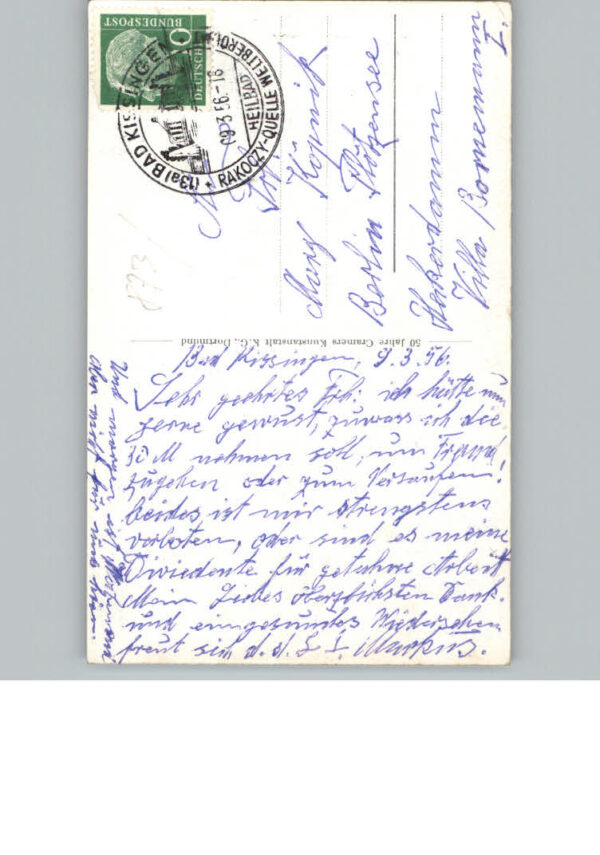 DEUTSCHE
BUNDESPOST
10
(13a) BAD KISSINGEN
09.3.56.-16
HEILBAD
RAKOCZY-QUELLE WELTBERÜ
873/
Frl.
Marg Köpnik
Berlin Plötzensee
Heckerdamm
Villa Bornemann
I.
50 Jahre Cramers Kunstanstalt K.G., Dortmund
Bad Kissingen, 9.3.56.
Sehr geehrtes Frh: ich hätte nun
gerne gewust, zuwass ich die
30 M nehmen soll, um Fremd
zugehen oder zum Versaufen!
beides ist mir strengstens
verboten, oder sind es meine
Diviedente für getahne Arbeit
Mein Liebes Dank.
und ein gesundes Wiedersehen
freut sich d. d. L I. Markus.
Und morgen ist
aber nicht für